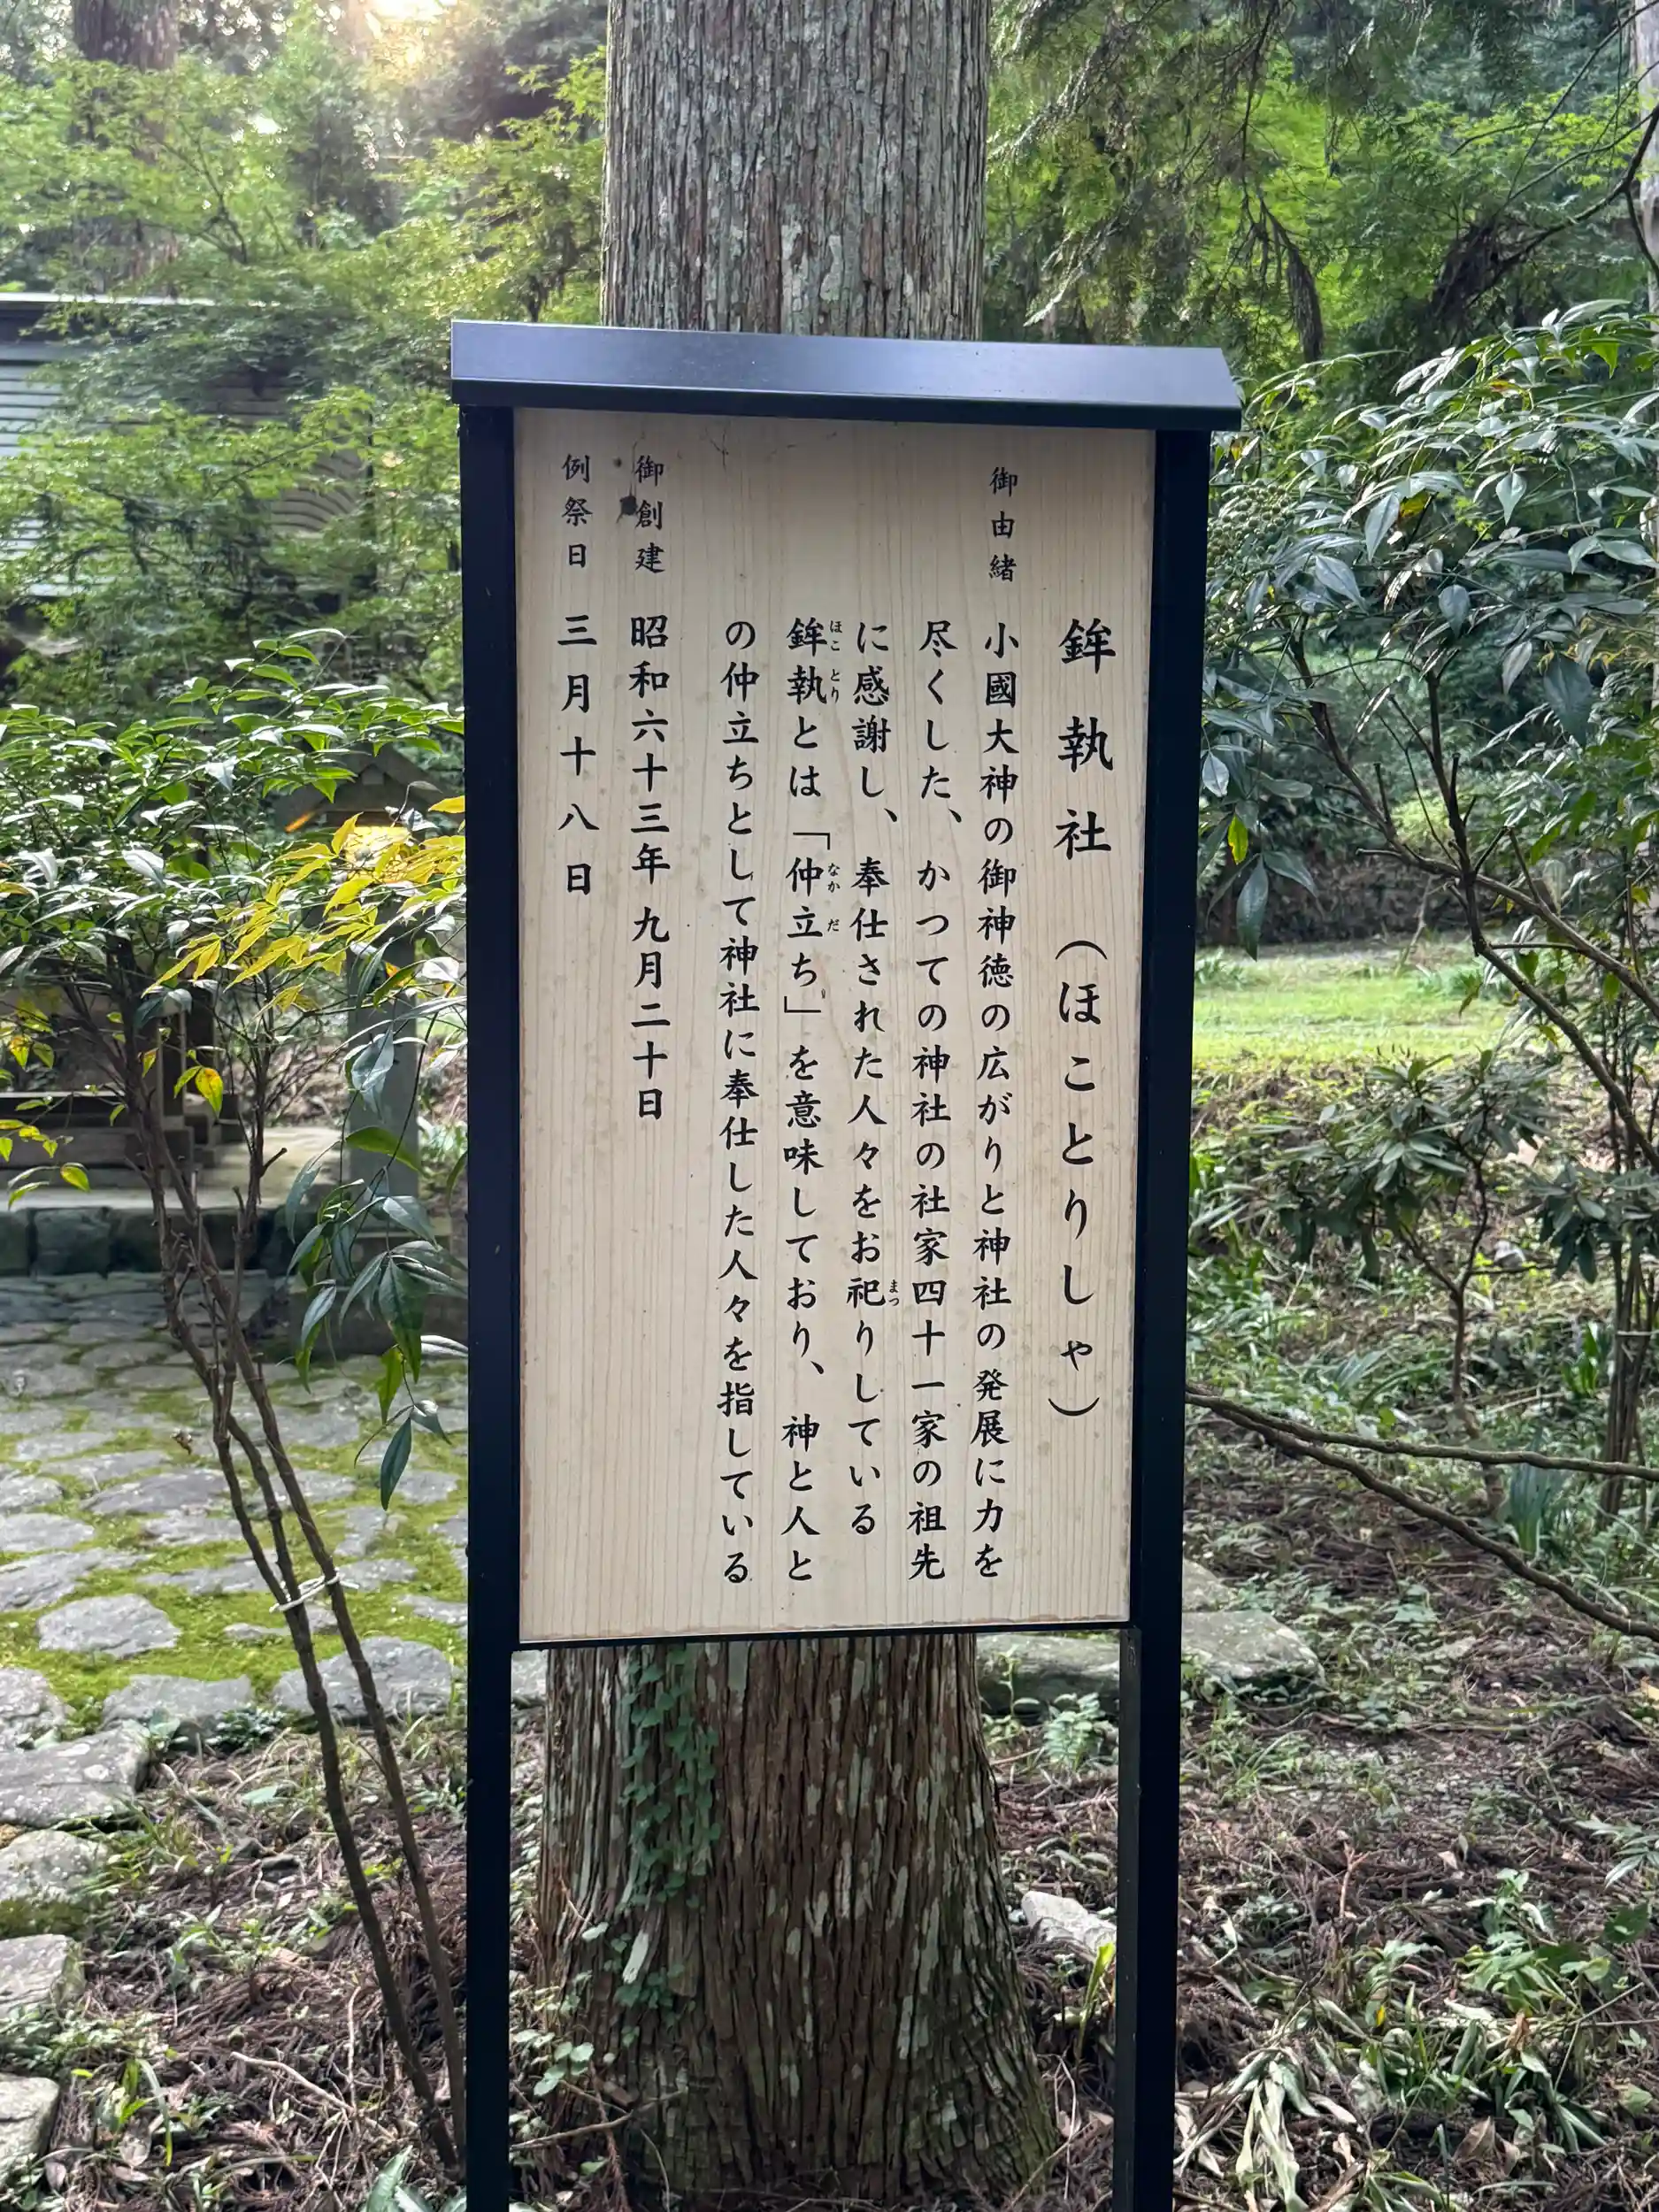 鉾執社（ほことりしゃ）
御由緒　小國大神の御神徳の広がりと神社の発展に力を
尽くした、かつての神社の社家四十一家の祖先
に感謝し、奉仕された人々をお祀りしている
鉾執とは「仲立ち」を意味しており、神と人と
の仲立ちとして神社に奉仕した人々を指している
御創建　昭和六十三年九月二十日
例祭日　三月十八日